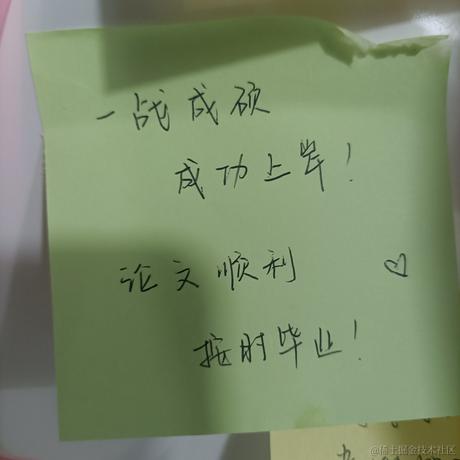 一战成硕
成功上岸！
论文顺利 ♡
按时毕业！
@稀土掘金技术社区